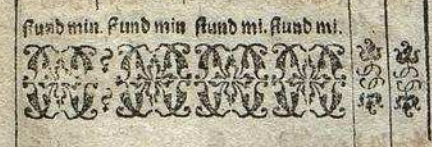 stund min. stund min stund mi. stund mi.